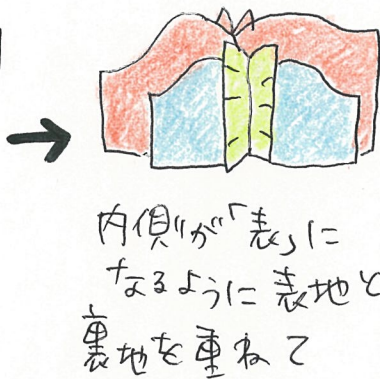 内側が「表」に
なるように表地と
裏地を重ねて